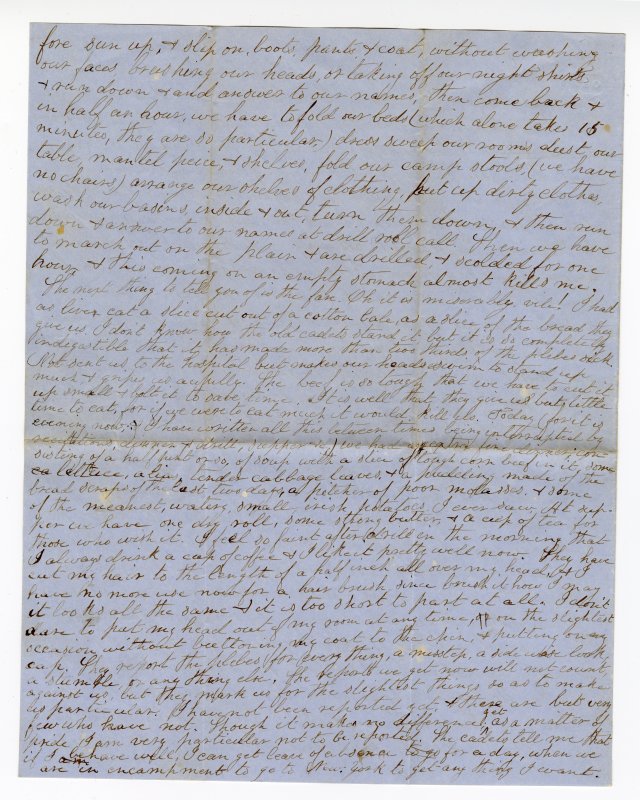 fore sun up, & slip on, boots, pants & coat, without washing
our faces brushing our heads, or taking off our night shirts
& run down & and answer to our names, then come back &
in half an hour, we have to fold our beds (which alone takes 15
minutes, they are so particular,) dress sweep our rooms dust our
table, mantel peice & shelves, fold our camp stools (we have
no chairs) arrange our shelves of clothing, put up dirty clothes,
wash our basins, inside & out, turn them down, & then run
down & answer to our names at drill roll call. Then we have
to march out on the plain & are drilled & scolded for one
hour, & this coming on an empty stomach almost kills me.
The next thing to tell you of is the fare. Oh it is miserably vile! I had
as lieve eat a slice cut out of a cotton bale, as a slice of the bread they
give us I don't know how the old cadets stand it, but it is so completely
indegestible that it has made more than two thirds of the plebes sick.
Not sent us, to the hospital but makes our heads swim to stand up
much & gripes us awfully. The beef is so tough that we have to cut it
up small & bolt it to save time. It is well that they give us but little
time to eat, for if we were to eat much it would kill us. Today (for it is
evening now, & I have written all this between times being interrupted by
recitations, dinner & drill, ) we had dinner, con-
sisting of a half pint or so, of soup with a slice of tough corn beef in it, some
lettuce, tender cabbage leaves, & a pudding made of the
bread scraps of the last two days, a pitcher of poor molasses. & some
of the meanest, watery, small irish potatoes I ever saw. At sup-
per we have one dry roll, some strong butter, & a cup of tea for
those who wish it. I feel so faint after drill in the morning that
I always drink a cup of coffee & I like it pretty well now. They have
cut my hair to the length of a half inch all over my head, & I
have no more use now for a hair brush, since brush it how I may
it looks all the same & it is too short to part at all. I don't
dare to put my head out of my room at any time, on the slightest
occasion without buttoning my coat to the chin, & putting on my
cap. They report the plebes for every thing, a misstep, a side wase look,
a stumble, or any thing else. The reports we get now will not count
against us, but they mark us for the slightest things so as to make
us particular. I have not been reported yet, & there are but very
few who have not. Though it makes no difference yet as a matter of
pride I am very particular not to be reported. The cadets tell me that
if I behave well, I can get leave of absence to go for a day, when we
are in encampment to go to New York to get any thing I want.